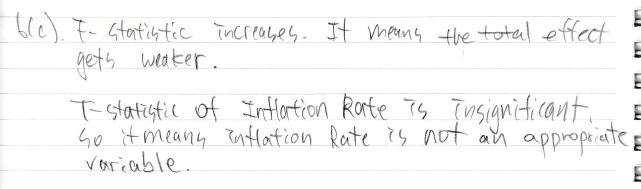 6(c). F-Statistic increases. It means the total effect
gets weaker.
T-statistic of Inflation Rate is insignificant.
So it means inflation Rate is not an appropriate
variable.